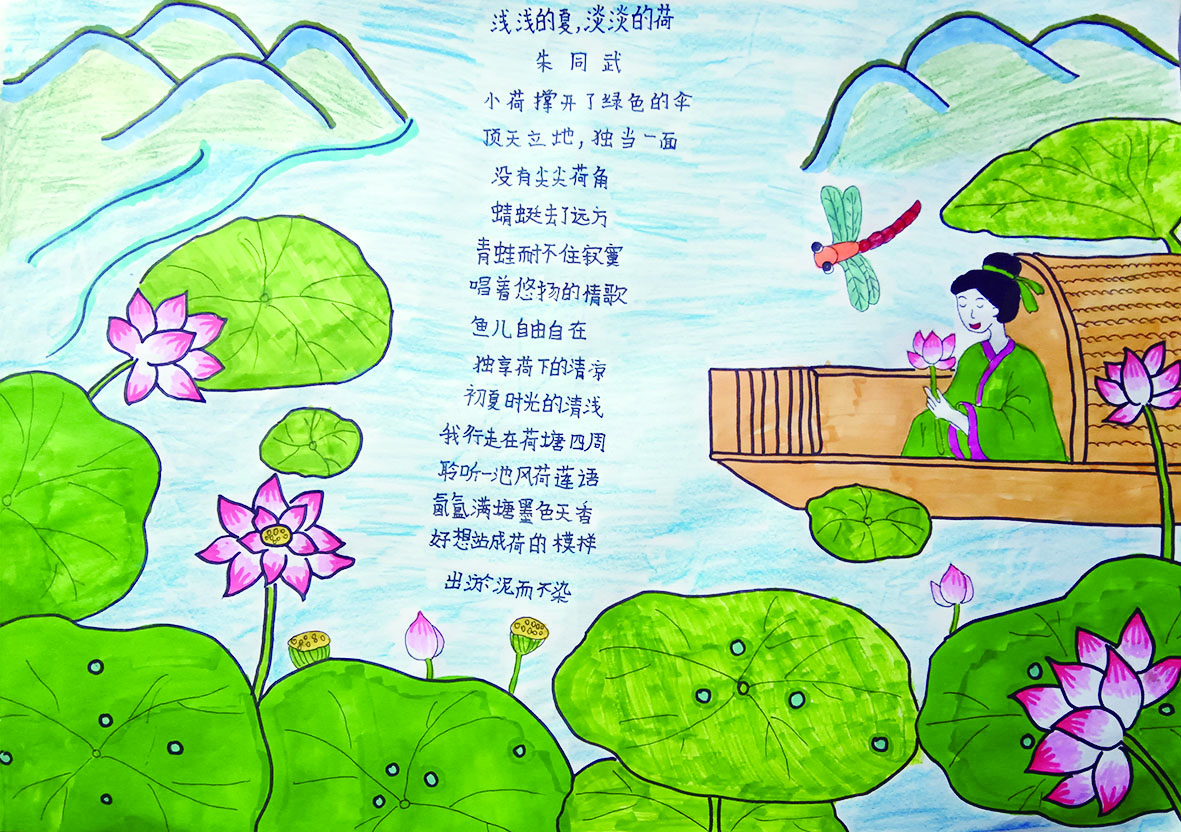 浅浅的夏,淡淡的荷
朱同武
小荷撑开了绿色的伞
顶天立地,独当一面
没有尖尖荷角
蜻蜓去了远方
青蛙耐不住寂寞
唱着悠扬的情歌
鱼儿自由自在
独享荷下的清凉
初夏时光的清浅
我行走在荷塘四周
聆听一池风荷莲语
氤氲满塘墨色天香
好想站成荷的模样
出淤泥而不染